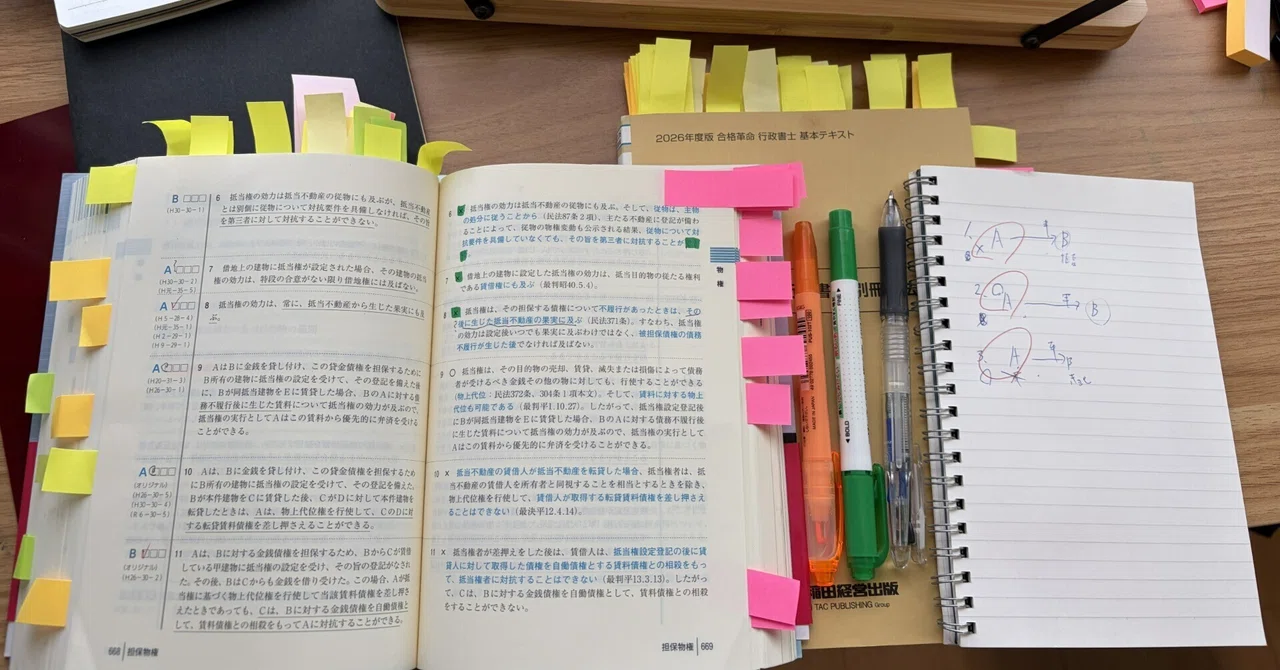 2026年度版 合格革命 行政書士 基本テキスト
B
(H30-30-1)
6 抵当権の効力は抵当不動産の従物にも及ぶが、抵当不動産
とは別個に従物について対抗要件を具備しなければ、その旨
を第三者に対して対抗することができない。
A
(H30-30-2)
(H元-35-5)
7 借地上の建物に抵当権が設定された場合、その建物の抵当
権の効力は、特段の合意がない限り借地権には及ばない。
A
(H5-28-4)
(H元-35-1)
(H2-29-1)
(H9-29-1)
8 抵当権の効力は、常に、抵当不動産から生じた果実にも及
ぶ。
A
(H20-31-3)
(H26-30-1)
9 AはBに金銭を貸し付け、この貸金債権を担保するために
B所有の建物に抵当権の設定を受けて、その登記を備えた後
に、Bが同抵当建物をEに賃貸した場合、BのAに対する債
務不履行後に生じた賃料について抵当権の効力が及ぶので、
抵当権の実行としてAはこの賃料から優先的に弁済を受ける
ことができる。
A
(オリジナル)
(H26-30-5)
(H30-30-4)
(R6-30-5)
10 Aは、Bに金銭を貸し付け、この貸金債権を担保するため
にB所有の建物に抵当権の設定を受けて、その登記を備えた。
Bが本件建物をCに賃貸した後、CがDに対して本件建物を
転貸したときは、Aは、物上代位権を行使して、CのDに対
する転貸賃料債権を差し押さえることができる。
B
(オリジナル)
(H26-30-2)
11 Aは、Bに対する金銭債権を担保するため、BからCが賃借
している甲建物に抵当権の設定を受け、その旨の登記がなされ
た。その後、BはCからも金銭を借り受けた。この場合、Aが抵
当権に基づく物上代位権を行使して当該賃料債権を差し押さ
えたときであっても、Cは、Bに対する金銭債権を自働債権と
して、賃料債権との相殺をもってAに対抗することができる。
668 担保物権
6
抵当権の効力は抵当不動産の従物にも及ぶ。そして、従物は、主物
の処分に従うことから(民法87条2項)、主たる不動産に登記が備わ
ることによって、従物の物権変動も公示される結果、従物について対
抗要件を具備していなくても、その旨を第三者に対抗することが
7
借地上の建物に設定した抵当権の効力は、抵当目的物の従たる権利
である賃借権にも及ぶ(最判昭40.5.4)。
8
抵当権は、その担保する債権について不履行があったときは、その
後に生じた抵当不動産の果実に及ぶ(民法371条)。すなわち、抵当権
の効力は設定後いつでも果実に及ぶわけではなく、被担保債権の債務
不履行が生じた後でなければ及ばない。
9 ○ 抵当権は、その目的物の売却、賃貸、滅失または損傷によって債務
者が受けるべき金銭その他の物に対しても、行使することができる
(物上代位:民法372条、304条1項本文)。そして、賃料に対する物上
代位も可能である(最判平1.10.27)。したがって、抵当権設定登記後
にBが同抵当建物をEに賃貸した場合、BのAに対する債務不履行後
に生じた賃料について抵当権の効力が及ぶので、抵当権の実行として
Aはこの賃料から優先的に弁済を受けることができる。
10 × 抵当不動産の賃借人が抵当不動産を転貸した場合、抵当権者は、抵
当不動産の賃借人を所有者と同視することを相当とするときを除き、
物上代位権を行使して、賃借人が取得する転貸賃料債権を差し押さえ
ることはできない(最決平12.4.14)。
11 × 抵当権者が差押えをした後は、賃借人は、抵当権設定登記の後に賃
貸人に対して取得した債権を自働債権とする賃料債権との相殺をもっ
て、抵当権者に対抗することはできない(最判平13.3.13)。したがっ
て、Cは、Bに対する金銭債権を自働債権として、賃料債権との相殺
をすることができない。
担保物権 669
物
権
BOLD
MADE IN JAPAN
別冊
稲田経営出版
TAC PUBLISHING Group
1.
A
B
2.
A
B
3.
A
B